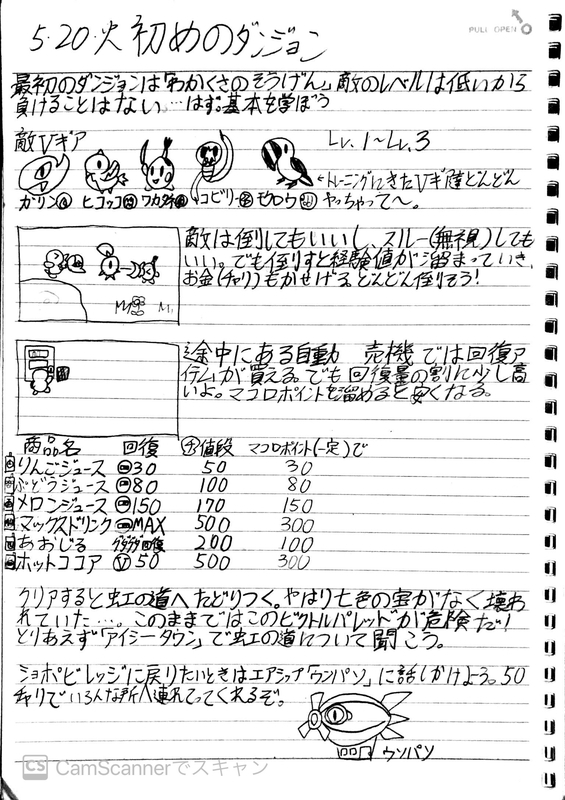 PULL OPEN
5・20・火 初めのダンジョン
最初のダンジョンは「わかくさのそうげん」敵のレベルは低いから
負けることはない…はず。基本を学ぼう
敵Vギア
Lv.1〜Lv.3
ガリン ヒコッコ ワカタネ コビリー モクロウ
←トレーニングにきたVギ達どんどん
やっちゃって〜。
敵は倒してもいいし、スルー(無視)しても
いい。でも倒すと経験値が溜まっていき、
お金(チャリ)もかせげる。どんどん倒そう!
途中にある自動 売機では回復ア
イテムが買える。でも回復量の割に少し高
いよ。マコロポイントを溜めると安くなる。
商品名 回復 チ値段 マコロポイント(一定)で
りんごジュース 30 50 30
ぶどうジュース 80 100 80
メロンジュース 150 170 150
マックスドリンク MAX 500 300
あおじる 回復 200 100
ホットココア V 50 500 300
クリアすると虹の道へたどりつく。やはり七色の宝がなく壊わ
れていた…。このままではこのビクトルパレッドが危険だ!
とりあえず「アイシータウン」で虹の道について聞こう。
ショポビレッジに戻りたいときはエアシップ「ウンパン」に話しかけよう。50
チャリでいろんな所へ連れてってくれるぞ。
ウンパン
CS CamScannerでスキャン